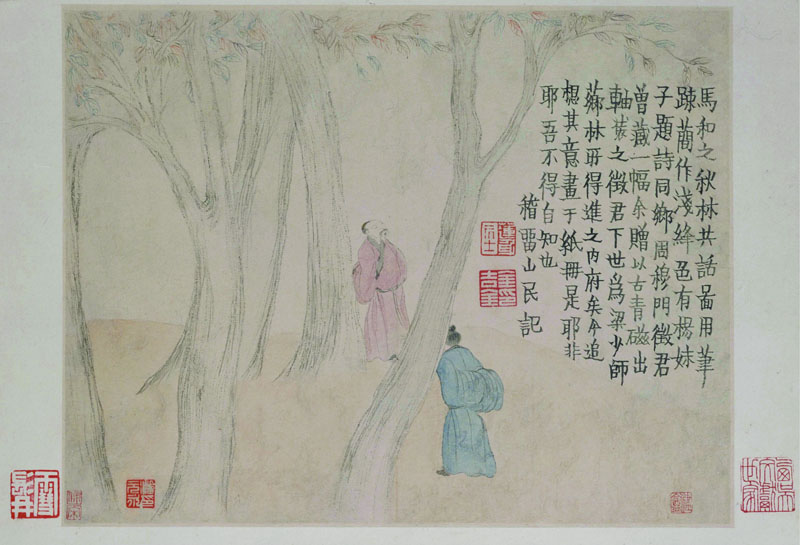 馬和之秋林共話啚用筆
踈蕑作淺絳色有楊妹
子題詩同鄉周穆門徵君
曾藏一幅余贈以古青磁出
軸裝之徵君下世爲梁少師
薌林所得進之內府矣今追
想其意畫于紙冊是耶非
耶吾不得自知也
稽畱山民記